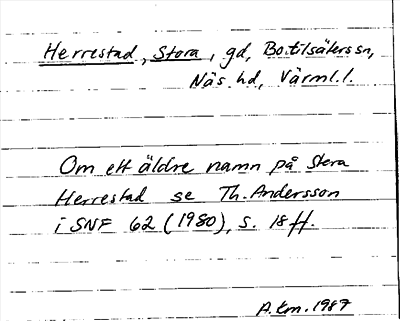 Herrestad, Stora, gd, Botilsäters sn,
Näs hd, Värml. l.
Om ett äldre namn på Stora
Herrestad se Th. Andersson
i SNF 62 (1980), s. 18 ff.
A.km. 1987